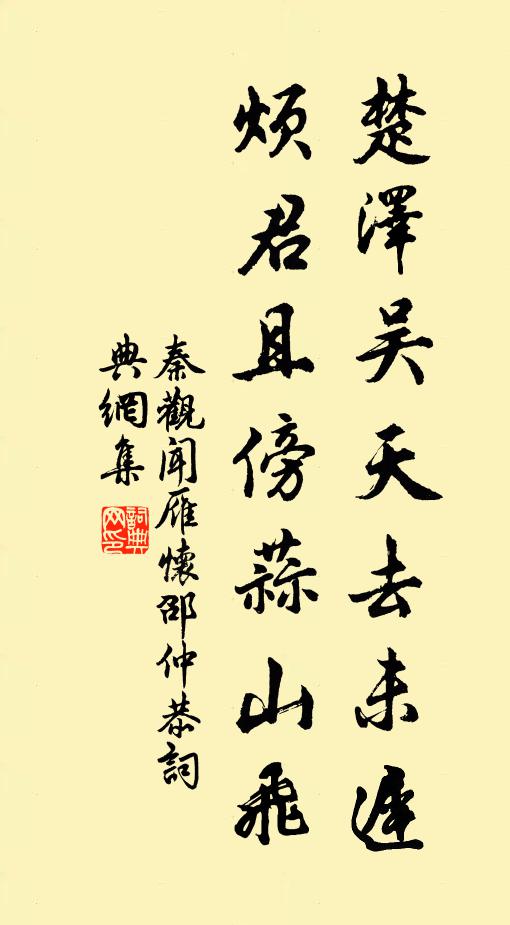 楚澤吴天去未遲
煩君且傍蒜山飛
秦觀聞雁懷邵仲恭詞
典網集
詞典網印